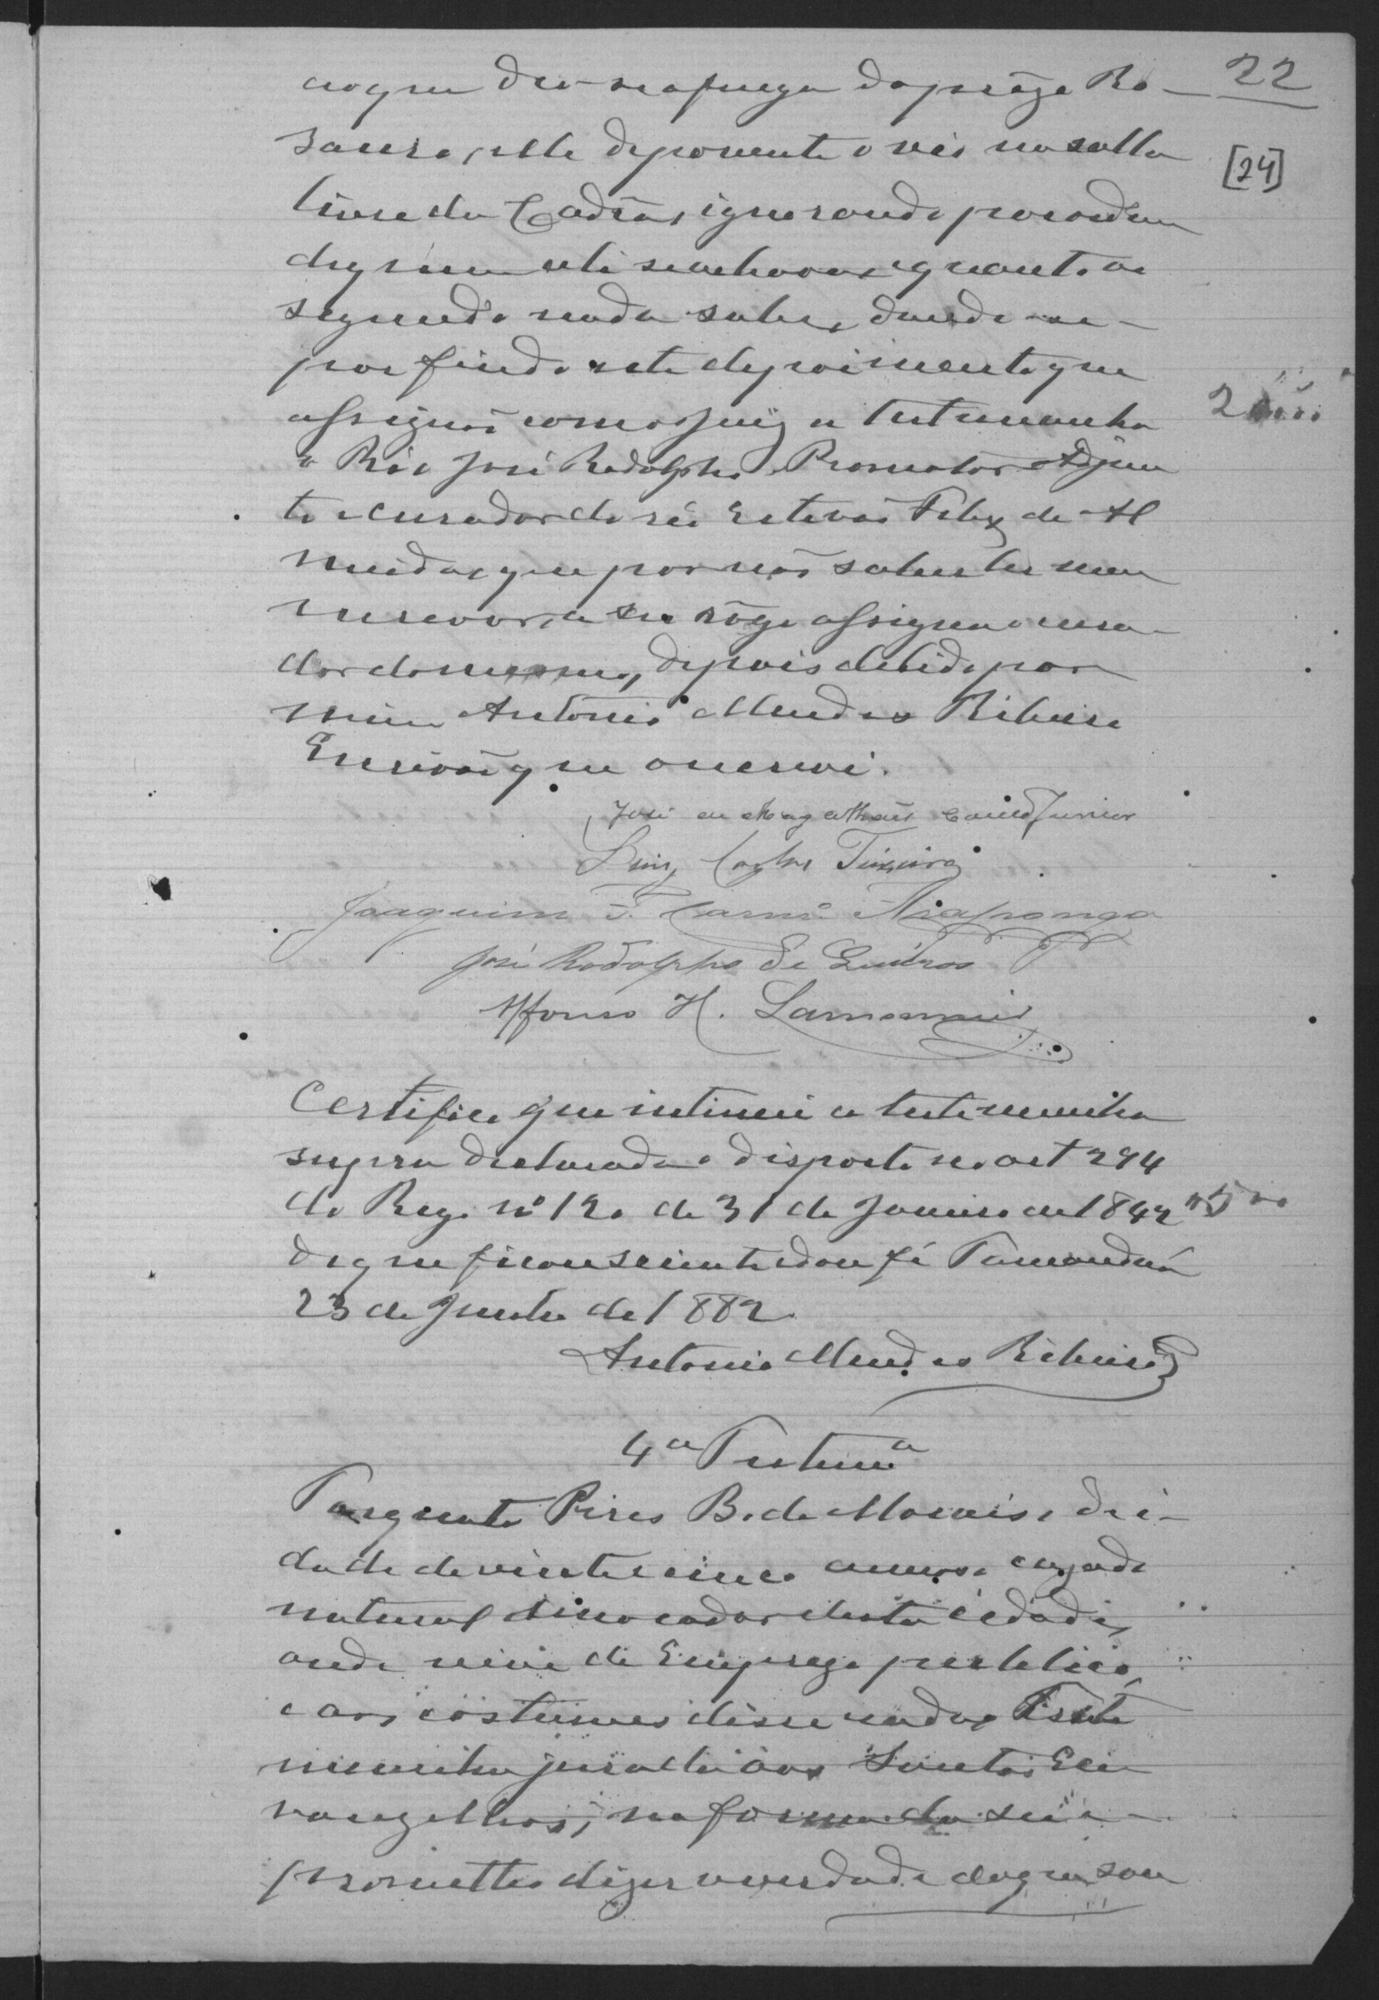 22
[24]
em que deu-se a fuga do prezo Ro-
sauro, elle deponente o vio na salla
livre da Cadêa, ignorando por ordem
de quem ali se achava, e quanto ao
segundo nada sabe, dando-se
por findo este depoimento que
assignão com o Juiz a testemunha
o Réo José Rodolpho, Promotor Adjun
to e curador do réo Estevão Felix de Al
meida, que por não saber ler nem
escrever, a seu rôgo assigna o cura-
dor do mesmo, depois de lido por
mim Antonio Mendes Ribeiro
Escrivão que o escrevi.
2
José de Magalhães Junior
Luiz Carlos Teixeira
Joaquim F. Carm.º Araponga
José Rodolpho de Queiros
Affonso H. Lamounier
Certifico que intimei a testemunha
supra declarada o disposto no art 294
do Reg. nº 120 de 31 de Janeiro de 1842
de que ficou sciente e dou fé Tamanduá
23 de Junho de 1882
Antonio Mendes Ribeiro
4ª Testemª
Targinato Pires B. de Moraes, de i-
dade de vinte cinco annos, cazado
natural e morador desta cidade,
onde vive de Emprego publico,
e aos costumes disse nada, Teste
munha jurada aos Santos E
vangelhos, na forma da Lei e
prometteo dizer a verdade do que sou